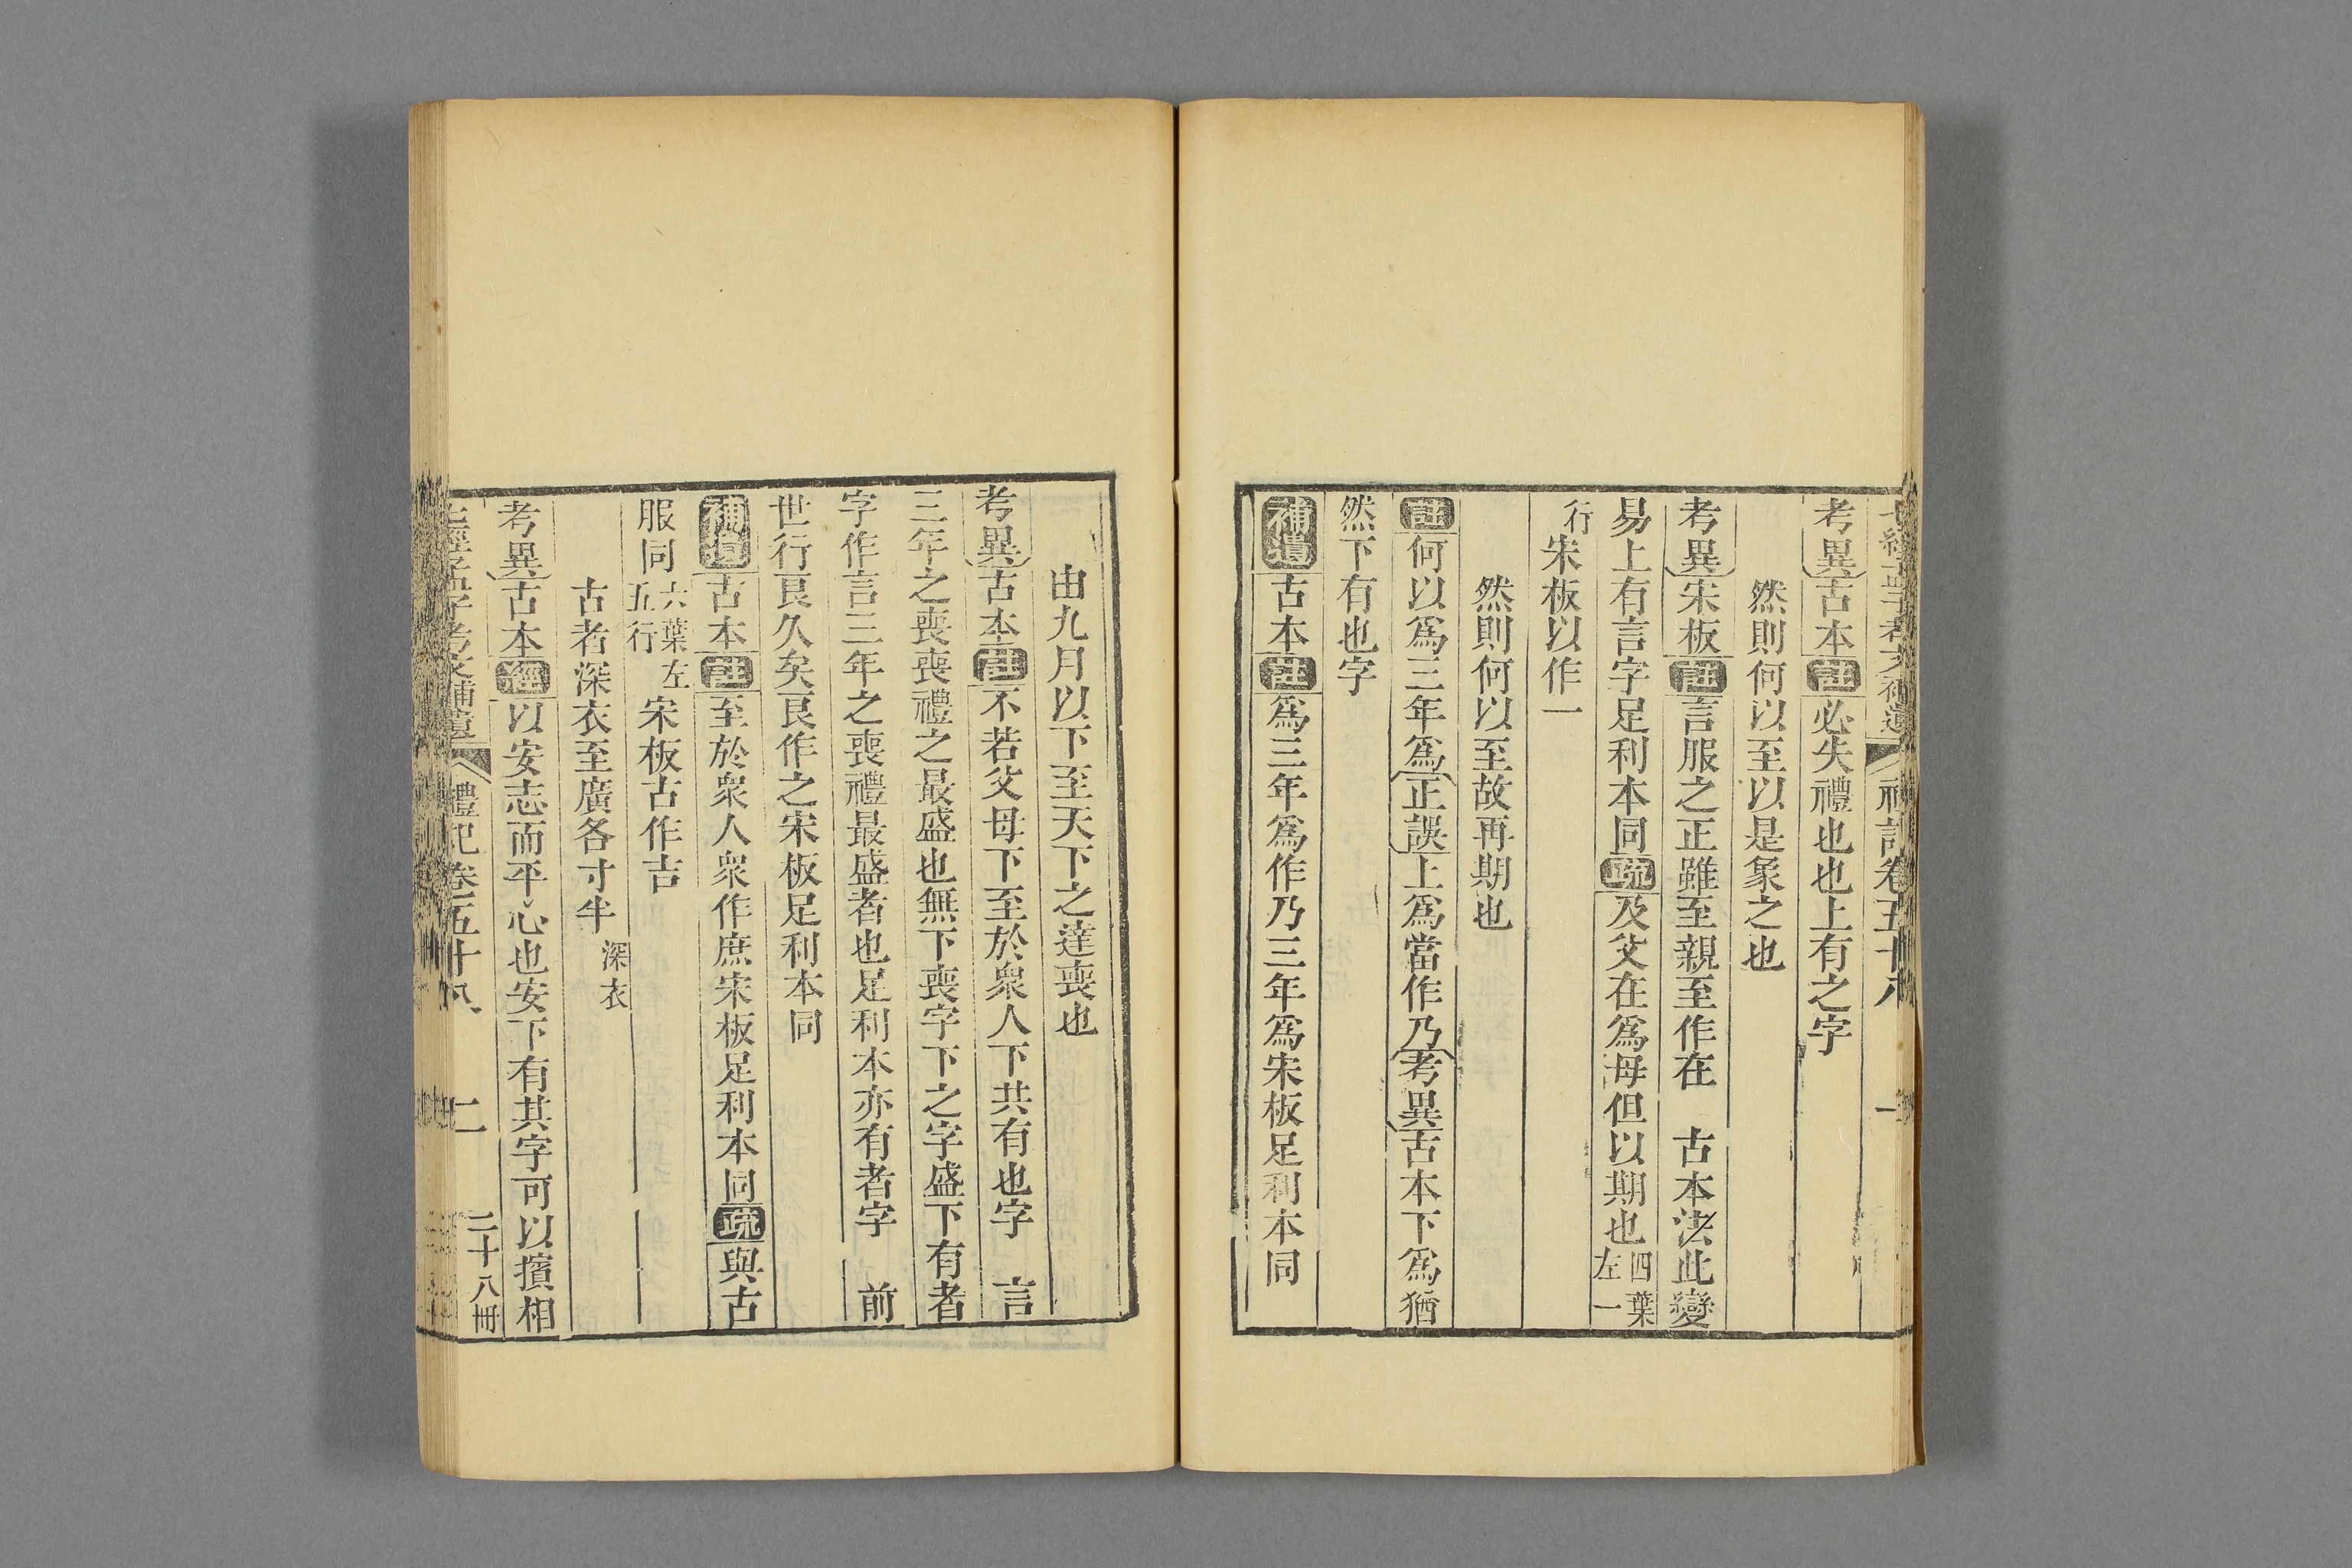 七經孟子考文補遺　禮記卷五十八　一
考異古本註必失禮也也上有之字
然則何以至以是象之也
考異宋板註言服之正雖至親至作在　古本法此變
易上有言字足利本同疏及父在爲母但以期也四葉左一
行宋板以作一
然則何以至故再期也
註何以爲三年爲正誤上爲當作乃考異古本下爲猶
然下有也字
補遺古本註爲三年爲作乃三年爲宋板足利本同
由九月以下至天下之達喪也
考異古本註不若父母下至於衆人下共有也字　言
三年之喪喪禮之最盛也無下喪字下之字盛下有者
字作言三年之喪禮最盛者也足利本亦有者字　前
世行艮久矣艮作之宋板足利本同
補遺古本註至於衆人衆作庶宋板足利本同疏與古
服同六葉左五行宋板古作吉
古者深衣至廣各寸半深衣
考異古本經以安志而平心也安下有其字可以擯相
七經孟子考文補遺　禮記卷五十八　二　二十八冊